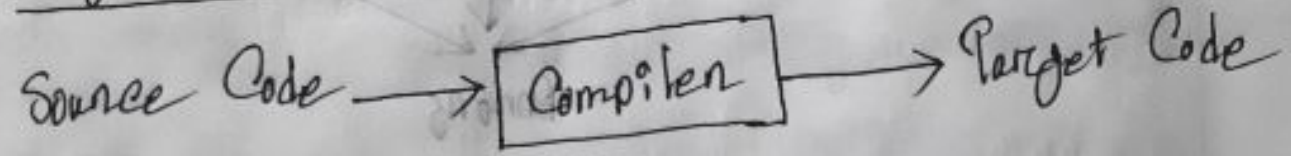 Source Code → Compiler → Target Code